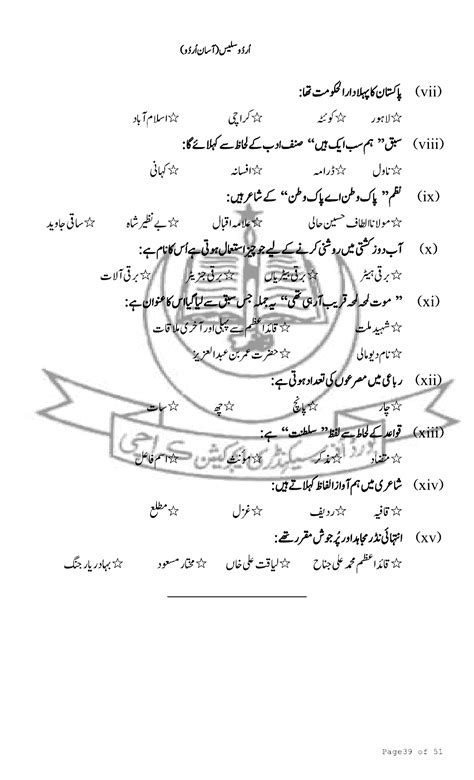 اُردو سلیس (آسان اُردو)
(vii) پاکستان کا پہلا دارالحکومت تھا:
☆ لاہور ☆ کوئٹہ ☆ کراچی ☆ اسلام آباد
(viii) سبق ”ہم سب ایک ہیں“ صنف ادب کے لحاظ سے کہلائے گا:
☆ ناول ☆ ڈرامہ ☆ افسانہ ☆ کہانی
(ix) نظم ”پاک وطن اے پاک وطن“ کے شاعر ہیں:
☆ مولانا الطاف حسین حالی ☆ علامہ اقبال ☆ بے نظیر شاہ ☆ ساقی جاوید
(x) آب دوز کشتی میں روشنی کرنے کے لیے جو چیز استعمال ہوتی ہے اُس کا نام ہے:
☆ برقی ہیٹر ☆ برقی بیٹریاں ☆ برقی جنریٹر ☆ برقی آلات
(xi) ”موت لمحہ لمحہ قریب آ رہی تھی“ یہ جملہ جس سبق سے لیا گیا اس کا عنوان ہے:
☆ شہید ملت ☆ قائداعظم سے پہلی اور آخری ملاقات
☆ نام دیو مالی ☆ حضرت عمر بن عبدالعزیز
(xii) رباعی میں مصرعوں کی تعداد ہوتی ہے:
☆ چار ☆ پانچ ☆ چھ ☆ سات
(xiii) قواعد کے لحاظ سے لفظ ”سلطنت“ ہے:
☆ متضاد ☆ مذکر ☆ مؤنث ☆ اسم فاعل
(xiv) شاعری میں ہم آواز الفاظ کہلاتے ہیں:
☆ قافیہ ☆ ردیف ☆ غزل ☆ مطلع
(xv) انتہائی نڈر مجاہد اور پُرجوش مقرر تھے:
☆ قائداعظم محمد علی جناح ☆ لیاقت علی خاں ☆ مختار مسعود ☆ بہادر یار جنگ
بورڈ آف سیکنڈری ایجوکیشن کراچی
Page39 of 51